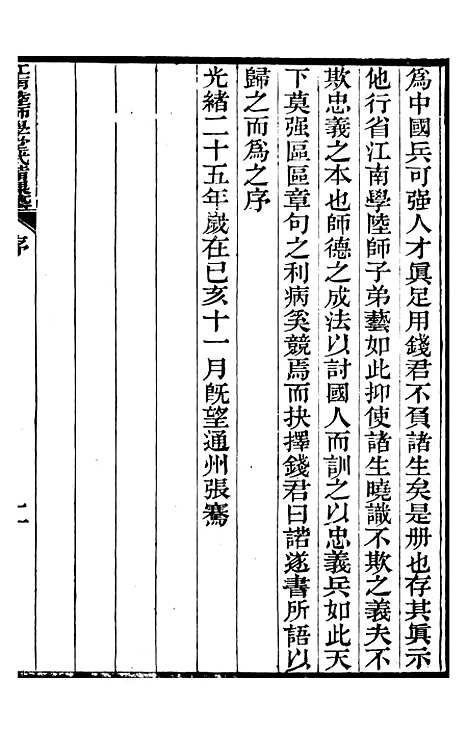 爲中國兵可强人才眞足用錢君不負諸生矣是册也存其眞示
他行省江南學陸師子弟藝如此抑使諸生曉識不欺之義夫不
欺忠義之本也師德之成法以討國人而訓之以忠義兵如此天
下莫强區區章句之利病奚競焉而抉擇錢君曰諾遂書所語以
歸之而爲之序
光緒二十五年歲在已亥十一月旣望通州張騫
江南陸師學堂武備課程
序
二